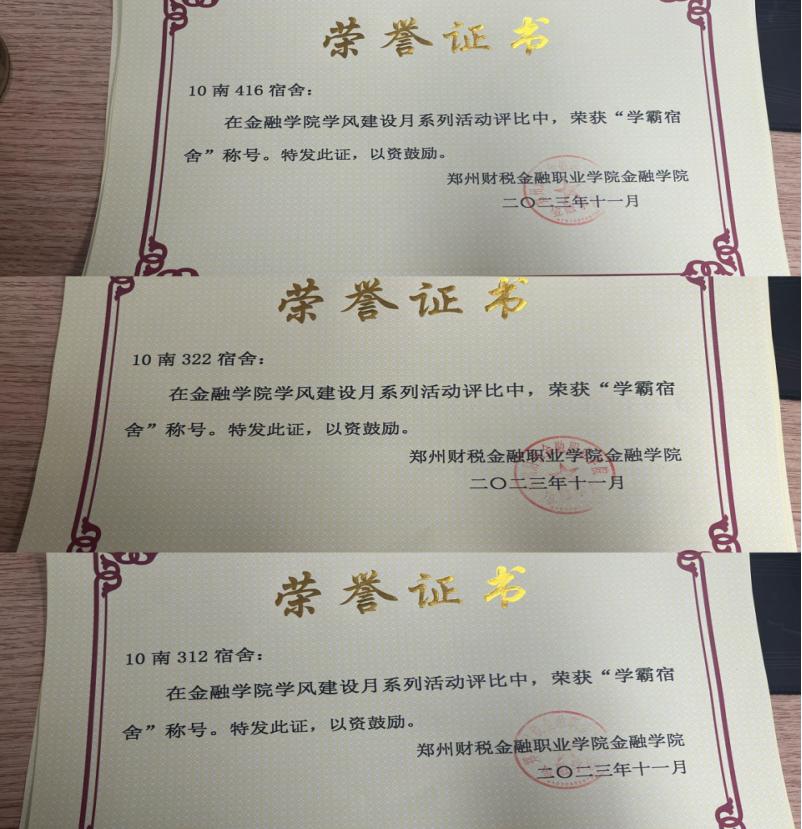 荣誉证书
10南416宿舍：
在金融学院学风建设月系列活动评比中，荣获“学霸宿
舍”称号。特发此证，以资鼓励。
郑州财税金融职业学院金融学院
二〇二三年十一月
荣誉证书
10南322宿舍：
在金融学院学风建设月系列活动评比中，荣获“学霸宿
舍”称号。特发此证，以资鼓励。
郑州财税金融职业学院金融学院
二〇二三年十一月
荣誉证书
10南312宿舍：
在金融学院学风建设月系列活动评比中，荣获“学霸宿
舍”称号。特发此证，以资鼓励。
郑州财税金融职业学院金融学院
二〇二三年十一月